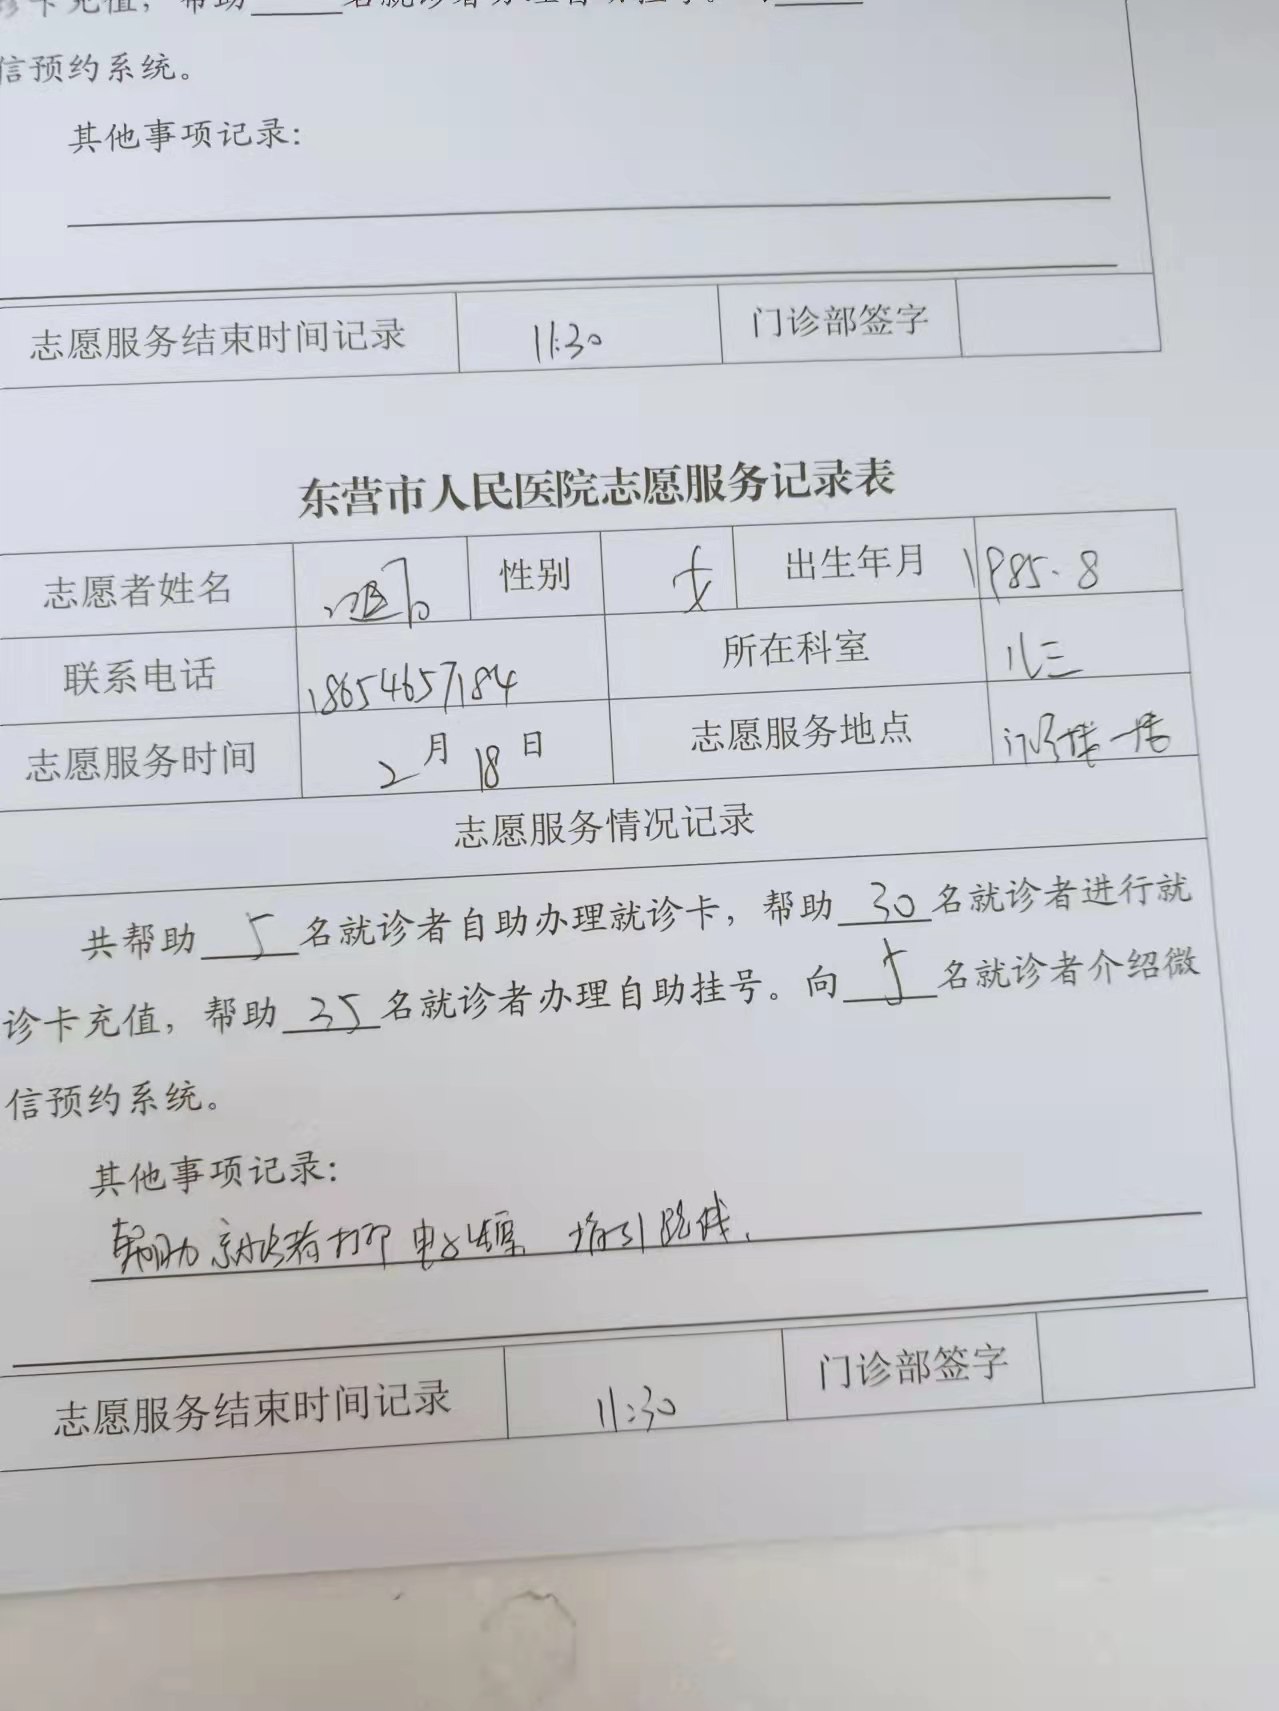 诊卡充值，帮助 名就诊者办理自助挂号。向
信预约系统。
其他事项记录：
志愿服务结束时间记录 11:30 门诊部签字
东营市人民医院志愿服务记录表
志愿者姓名 性别 女 出生年月 1985.8
联系电话 18654657184 所在科室 儿三
志愿服务时间 2月18日 志愿服务地点 门诊 一楼
志愿服务情况记录
共帮助 5 名就诊者自助办理就诊卡，帮助 30 名就诊者进行就
诊卡充值，帮助 35 名就诊者办理自助挂号。向 5 名就诊者介绍微
信预约系统。
其他事项记录：
帮助就诊者打印电子发票 指引路线.
志愿服务结束时间记录 11:30 门诊部签字